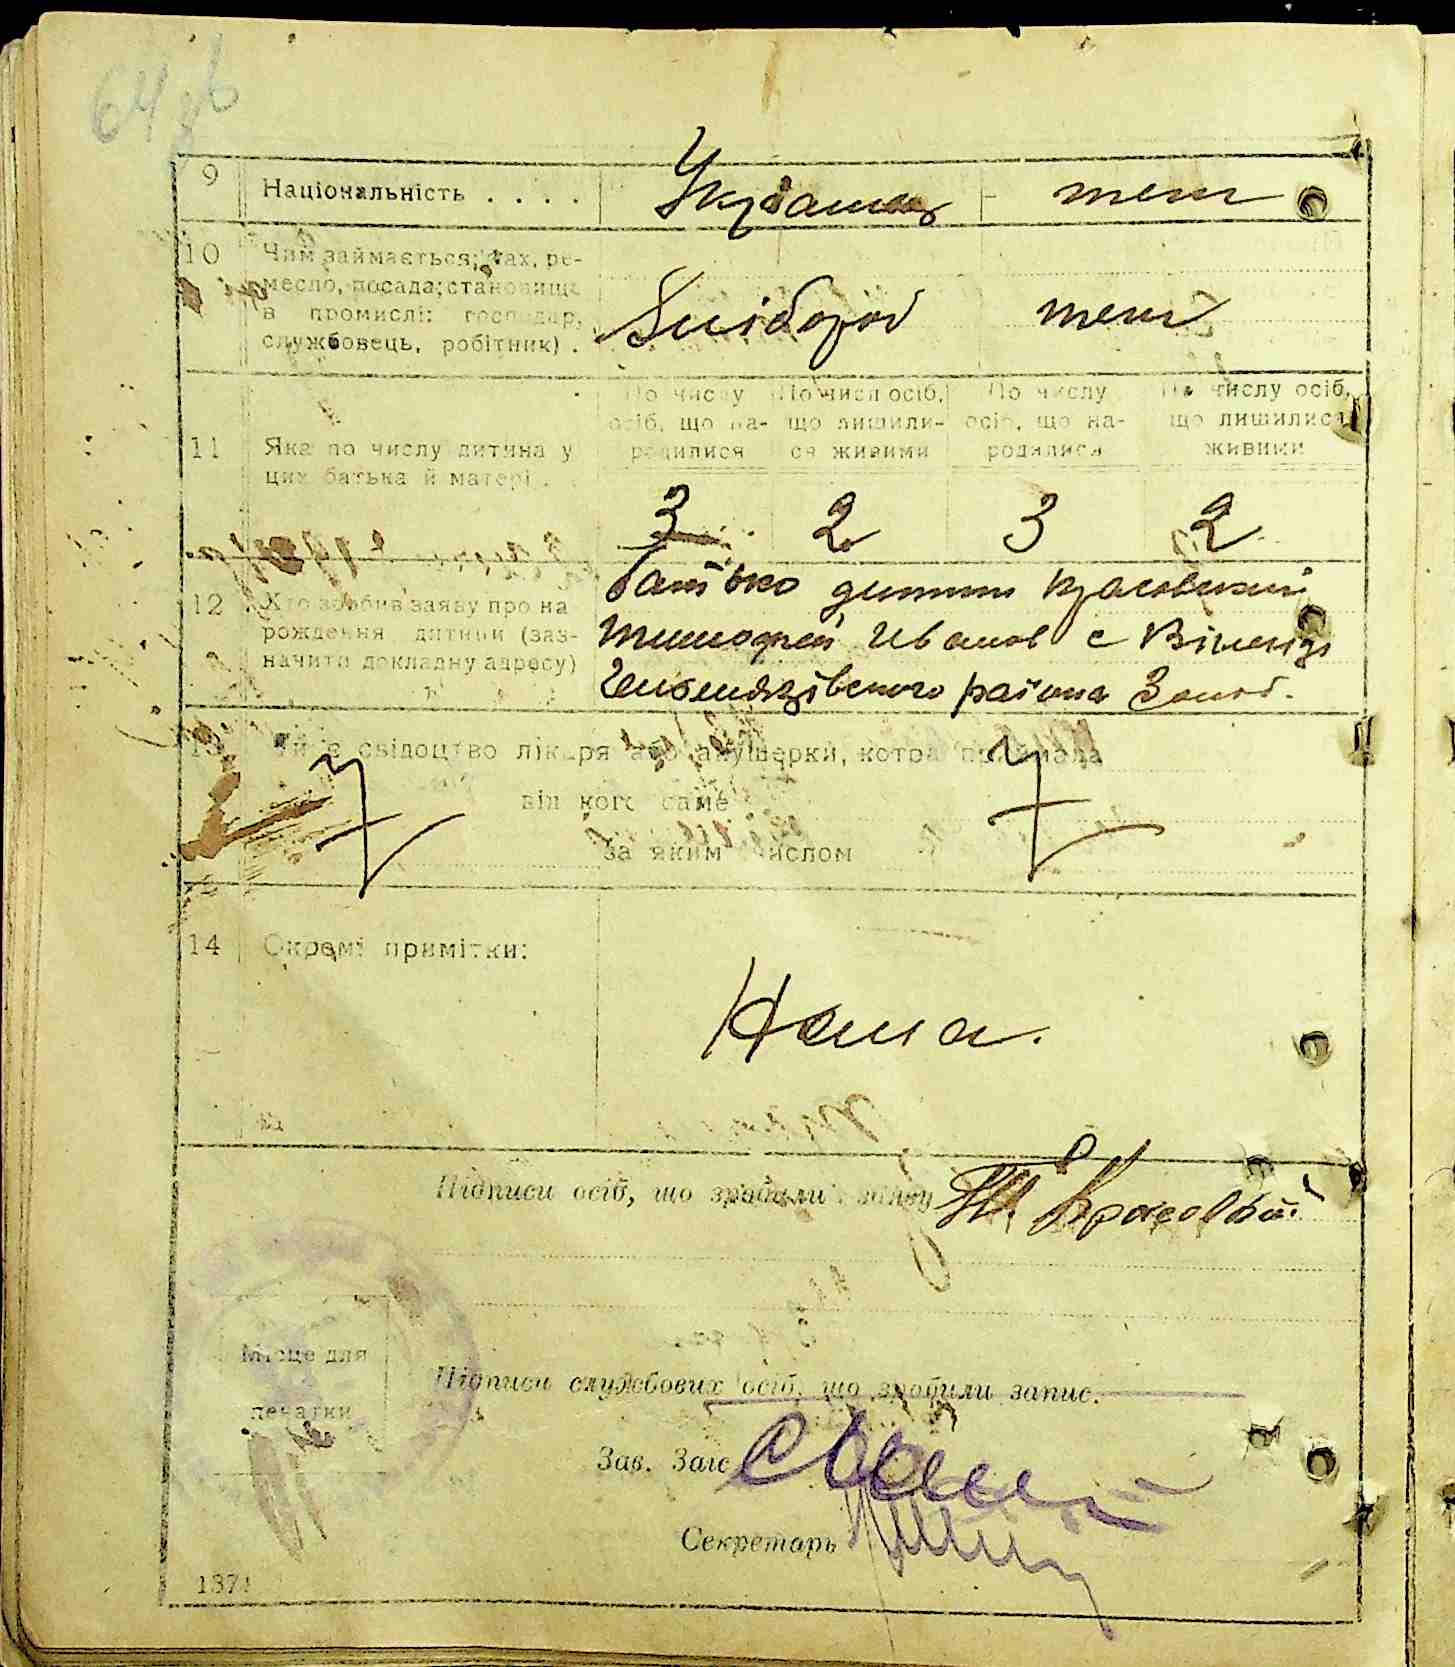 64 зв
9 Національність . . . . Українець теж
10 Чим займається; фах, ре-
месло, посада; становище
в промислі: господар,
службовець, робітник) .
Хлібороб теж
По числу По числ осіб, По числу По числу осіб,
осіб, що на- що лишили- осіб, що на- що лишилися
родилися ся живими родилися живими
11 Яка по числу дитина у
цих батька й матері .
3 2 3 2
12 Хто зробив заяву про на
рождення дитини (заз-
начити докладну адресу)
батько дитини Красовський
Тимофей Иванов с
района
13 Чи є свідоцтво лікаря або акушерки, котра приймала
від кого саме
за яким числом
14 Окремі примітки:
Нема.
Підписи осіб, що зробили заяву
Місце для
печатки
Підписи службових осіб, що зробили запис.
Зав. Загс
Секретарь
1371